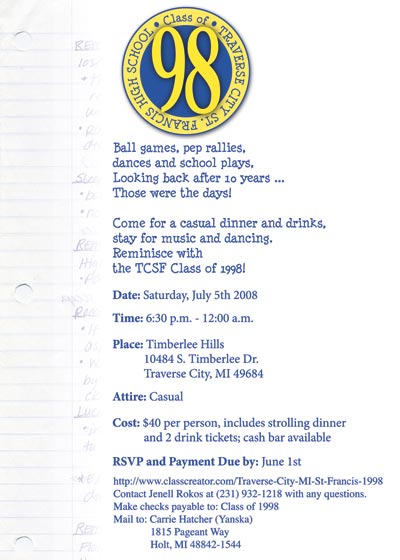 Class of
98
TRAVERSE CITY ST. FRANCIS HIGH SCHOOL
Ball games, pep rallies,
dances and school plays,
Looking back after 10 years ...
Those were the days!
Come for a casual dinner and drinks,
stay for music and dancing.
Reminisce with
the TCSF Class of 1998!
Date: Saturday, July 5th 2008
Time: 6:30 p.m. - 12:00 a.m.
Place: Timberlee Hills
10484 S. Timberlee Dr.
Traverse City, MI 49684
Attire: Casual
Cost: $40 per person, includes strolling dinner
and 2 drink tickets; cash bar available
RSVP and Payment Due by: June 1st
http://www.classcreator.com/Traverse-City-MI-St-Francis-1998
Contact Jenell Rokos at (231) 932-1218 with any questions.
Make checks payable to: Class of 1998
Mail to: Carrie Hatcher (Yanska)
1815 Pageant Way
Holt, MI 48842-1544